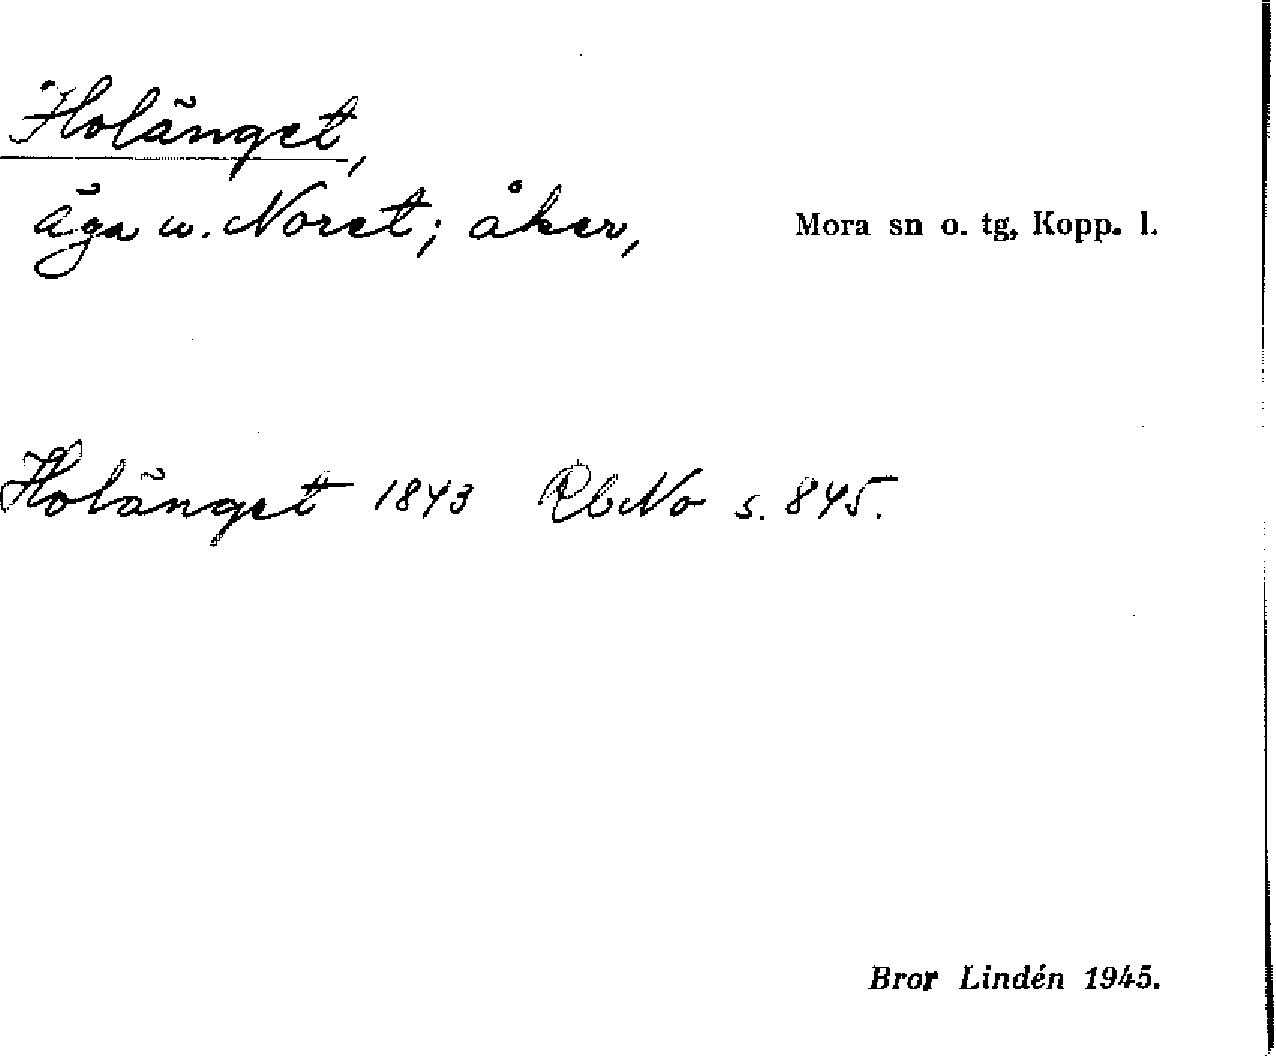 Holänget,
äga u. Noret; åker,
Mora sn o. tg, Kopp. l.
Holänget 1843 RbNo s. 845.
Bror Lindén 1945.